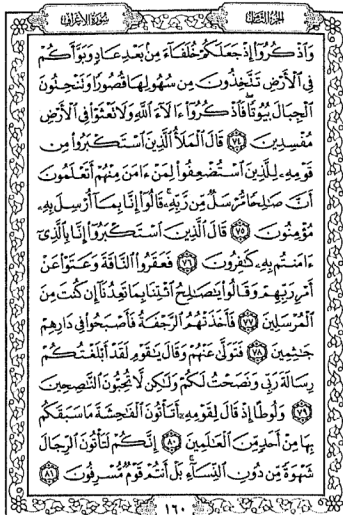 الجزء الثامن
سورة الأعراف
وَاذْكُرُوا إِذْ جَعَلَكُمْ خُلَفَاءَ مِنْ بَعْدِ عَادٍ وَبَوَّأَكُمْ
فِي الْأَرْضِ تَتَّخِذُونَ مِنْ سُهُولِهَا قُصُورًا وَتَنْحِتُونَ
الْجِبَالَ بُيُوتًا فَاذْكُرُوا ءَالَاءَ اللَّهِ وَلَا تَعْثَوْا فِي الْأَرْضِ
مُفْسِدِينَ ﴿٧٤﴾ قَالَ الْمَلَأُ الَّذِينَ اسْتَكْبَرُوا مِنْ
قَوْمِهِ لِلَّذِينَ اسْتُضْعِفُوا لِمَنْ ءَامَنَ مِنْهُمْ أَتَعْلَمُونَ
أَنَّ صَٰلِحًا مُرْسَلٌ مِنْ رَبِّهِ قَالُوا إِنَّا بِمَا أُرْسِلَ بِهِ
مُؤْمِنُونَ ﴿٧٥﴾ قَالَ الَّذِينَ اسْتَكْبَرُوا إِنَّا بِالَّذِي
ءَامَنْتُمْ بِهِ كَٰفِرُونَ ﴿٧٦﴾ فَعَقَرُوا النَّاقَةَ وَعَتَوْا عَنْ
أَمْرِ رَبِّهِمْ وَقَالُوا يَٰصَٰلِحُ ائْتِنَا بِمَا تَعِدُنَا إِنْ كُنْتَ مِنَ
الْمُرْسَلِينَ ﴿٧٧﴾ فَأَخَذَتْهُمُ الرَّجْفَةُ فَأَصْبَحُوا فِي دَارِهِمْ
جَٰثِمِينَ ﴿٧٨﴾ فَتَوَلَّىٰ عَنْهُمْ وَقَالَ يَٰقَوْمِ لَقَدْ أَبْلَغْتُكُمْ
رِسَالَةَ رَبِّي وَنَصَحْتُ لَكُمْ وَلَٰكِنْ لَا تُحِبُّونَ النَّٰصِحِينَ
﴿٧٩﴾ وَلُوطًا إِذْ قَالَ لِقَوْمِهِ أَتَأْتُونَ الْفَٰحِشَةَ مَا سَبَقَكُمْ
بِهَا مِنْ أَحَدٍ مِنَ الْعَٰلَمِينَ ﴿٨٠﴾ إِنَّكُمْ لَتَأْتُونَ الرِّجَالَ
شَهْوَةً مِنْ دُونِ النِّسَاءِ بَلْ أَنْتُمْ قَوْمٌ مُسْرِفُونَ ﴿٨١﴾
١٦٠